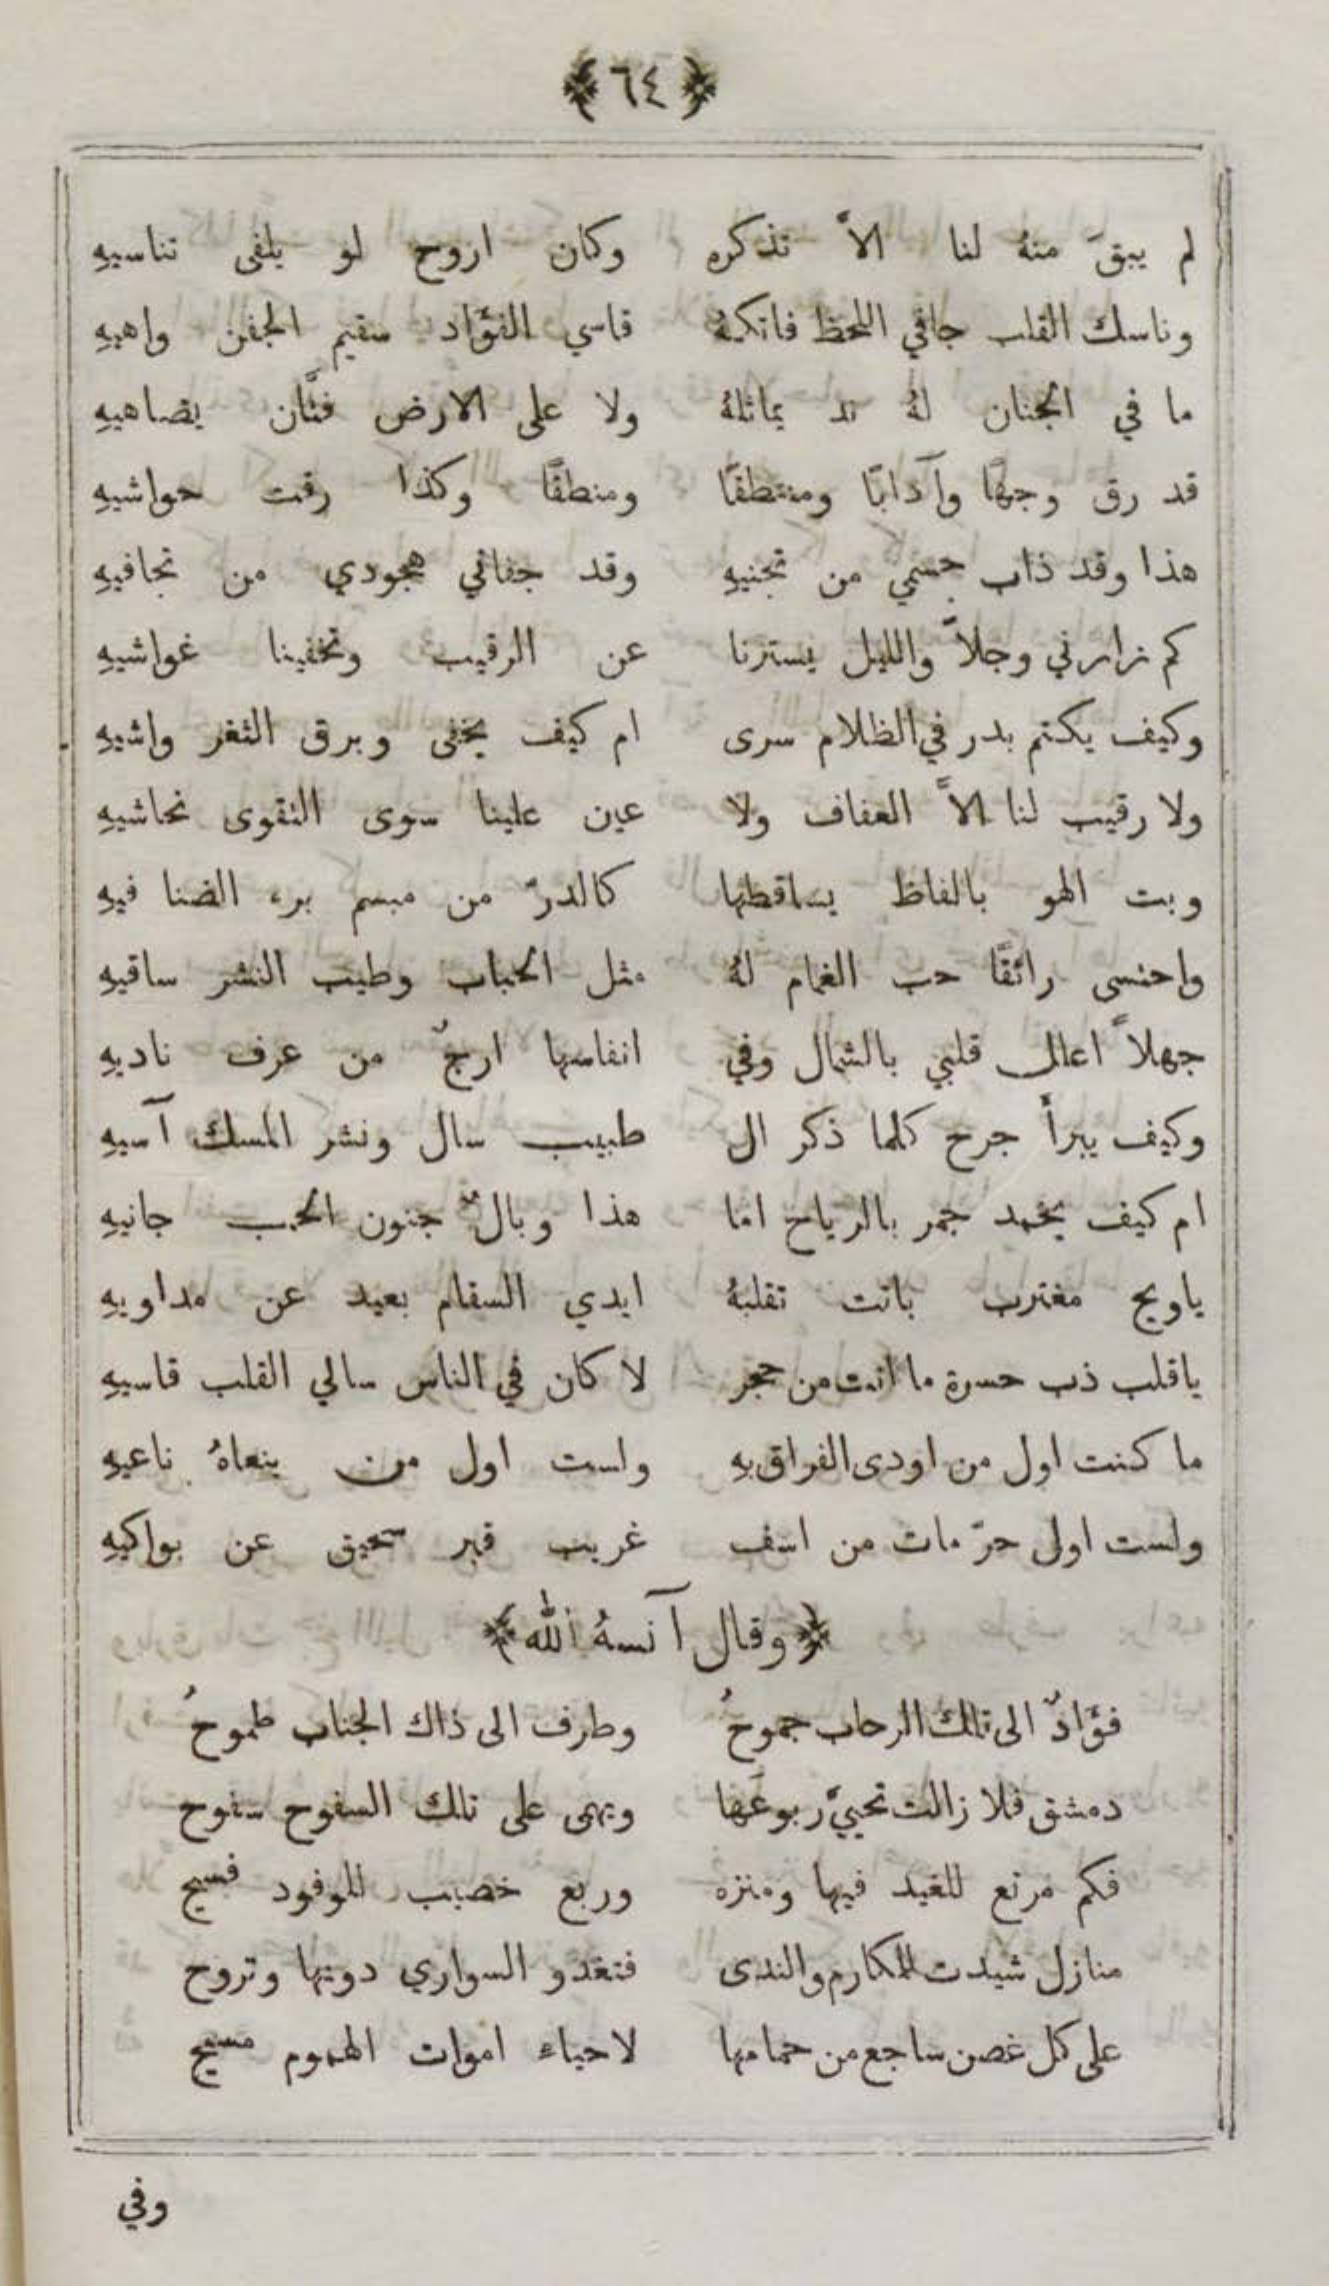 ﴿٦٤﴾
لم يبقَ منهُ لنا الاَّ تذكره وكان اروح لو يلفى تناسيهِ
وناسك القلب جافي اللحظ فاتكهُ قاسي الفؤاد سقيم الجفن واهيهِ
ما في الجنان لهُ ند يماثلهُ ولا على الارض فتَّان يضاهيهِ
قد رق وجهًا وآدابًا ومنتطقًا ومنطقًا وكذا رقت حواشيهِ
هذا وقد ذاب جسمي من تجنيهِ وقد جفاني هجودي من تجافيهِ
كم زارني وجلاً والليل يسترنا عن الرقيب وتخفينا غواشيهِ
وكيف يكتم بدر في الظلام سرى ام كيف يخفى وبرق الثغر واشيهِ
ولا رقيب لنا الاَّ العفاف ولا عين علينا سوى التقوى نحاشيهِ
وبت الهو بالفاظ يساقطها كالدرّ من مبسم برء الضنا فيهِ
واحتسى رائقًا حب الغمام لهُ مثل الحباب وطيب النشر ساقيهِ
جهلاً اعالل قلبي بالشمال وفي انفاسها ارجٌ من عرف ناديهِ
وكيف يبرأ جرح كلما ذكر ال طبيب سال ونشر المسك آسيهِ
ام كيف يخمد جمر بالرياح اما هذا وبالٌ جنون الحب جانيهِ
ياويح مغترب باتت تقلبهُ ايدي السقام بعيد عن مداويهِ
ياقلب ذب حسرة ما انت من حجر لا كان في الناس سالي القلب قاسيهِ
ما كنت اول من اودى الفراق بهِ ولست اول من ينعاهُ ناعيهِ
ولست اولى حرّ مات من اسف غريب قبر سحيق عن بواكيهِ
﴿وقال آنسهُ الله﴾
فؤادٌ الى تلك الرحاب جموحُ وطرف الى ذاك الجناب طموحُ
دمشق فلا زالت تحييّ ربوعَها ويهمى على تلك السفوح سفوح
فكم مرتع للغيد فيها ومنزه وربع خصيب للوفود فسيح
منازل شيدت للمكارم والندى فتغدو السواري دونها وتروح
على كل غصن ساجع من حمامها لاحياء اموات الهموم مسيح
وفي